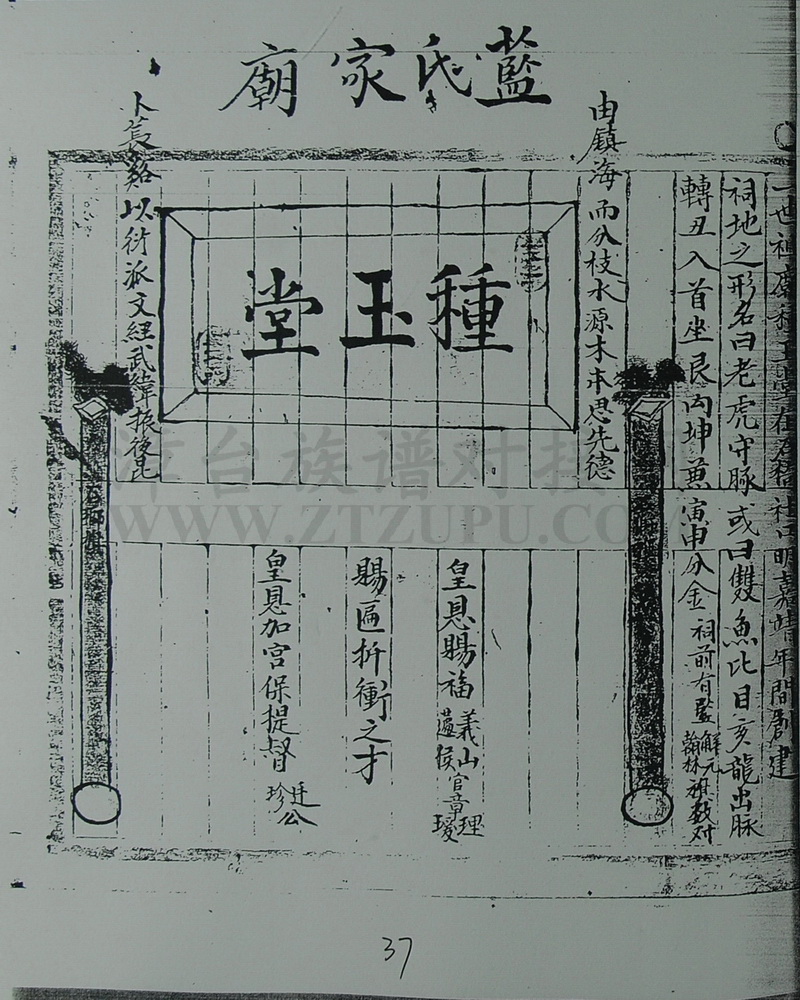 藍氏家廟
世祖廟種玉堂在
社口明嘉靖年間創建
祠地之形名曰老虎守豚或曰雙魚比目亥龍出脈
轉丑入首坐艮向坤兼寅申分金祠前有
解元
翰林旗数对
由鎮海而分枝水源木本思先德
種玉堂
卜萇谿以衍派文經武緯振後昆
皇恩賜福
義山官章理
瑷
賜匾折衝之才
皇恩加宫保提督
廷
珍公
漳台族谱对接
WWW.ZTZUPU.CO
37